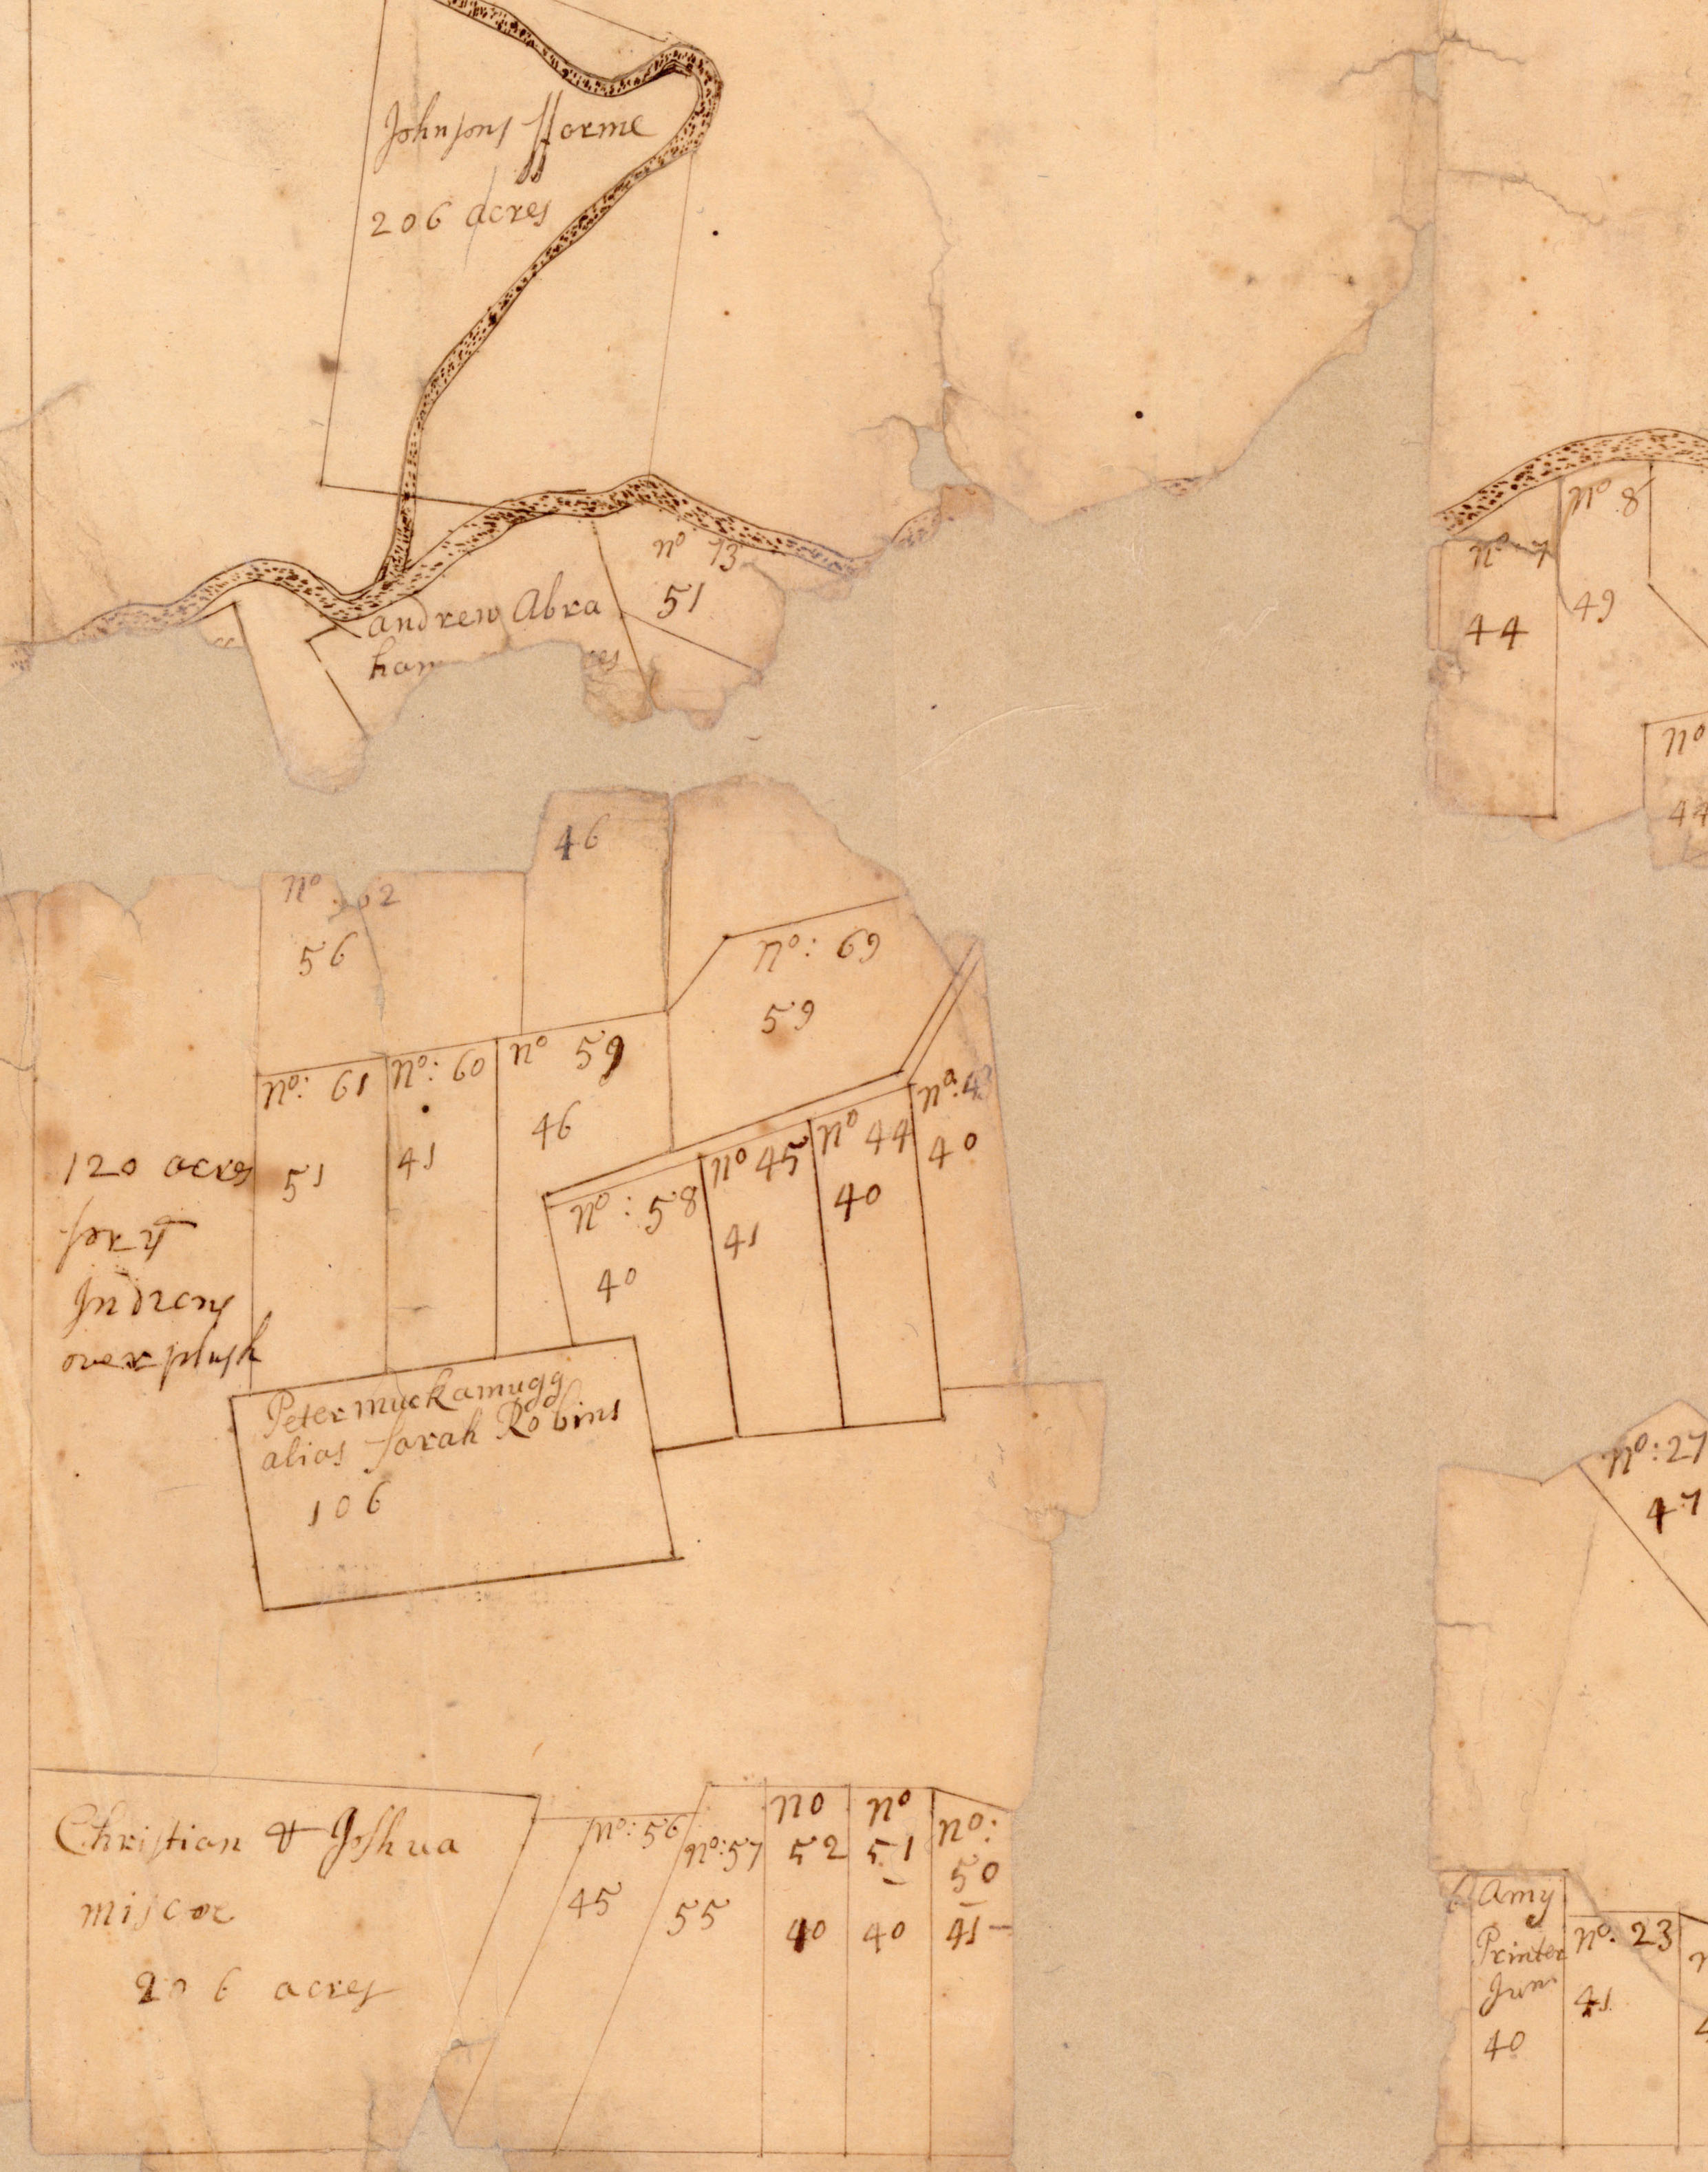 Johnsons fforme
206 acres
no 73
51
andrew Abra
ham
es
no 8
49
no 7
44
no
44
46
no 62
56
no: 69
59
no: 61
51
no: 60
41
no 59
46
no: 58
40
no 45
41
no 44
40
no: 43
40
120 acres
for yt
Indians
overplush
Peter muckamugg
alias Sarah Robins
106
no: 27
47
Christian & Joshua
miscoe
206 acres
no: 56
45
no: 57
55
no
52
40
no
51
40
no:
50
41
Amy
Printer
Jun
40
no. 23
41